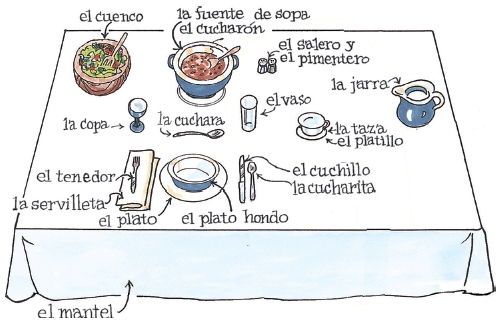 el cuenco
la fuente de sopa
el cucharón
el salero y
el pimentero
la jarra
la copa
la cuchara
el vaso
la taza
el platillo
el tenedor
la servilleta
el plato
el plato hondo
el cuchillo
la cucharita
el mantel